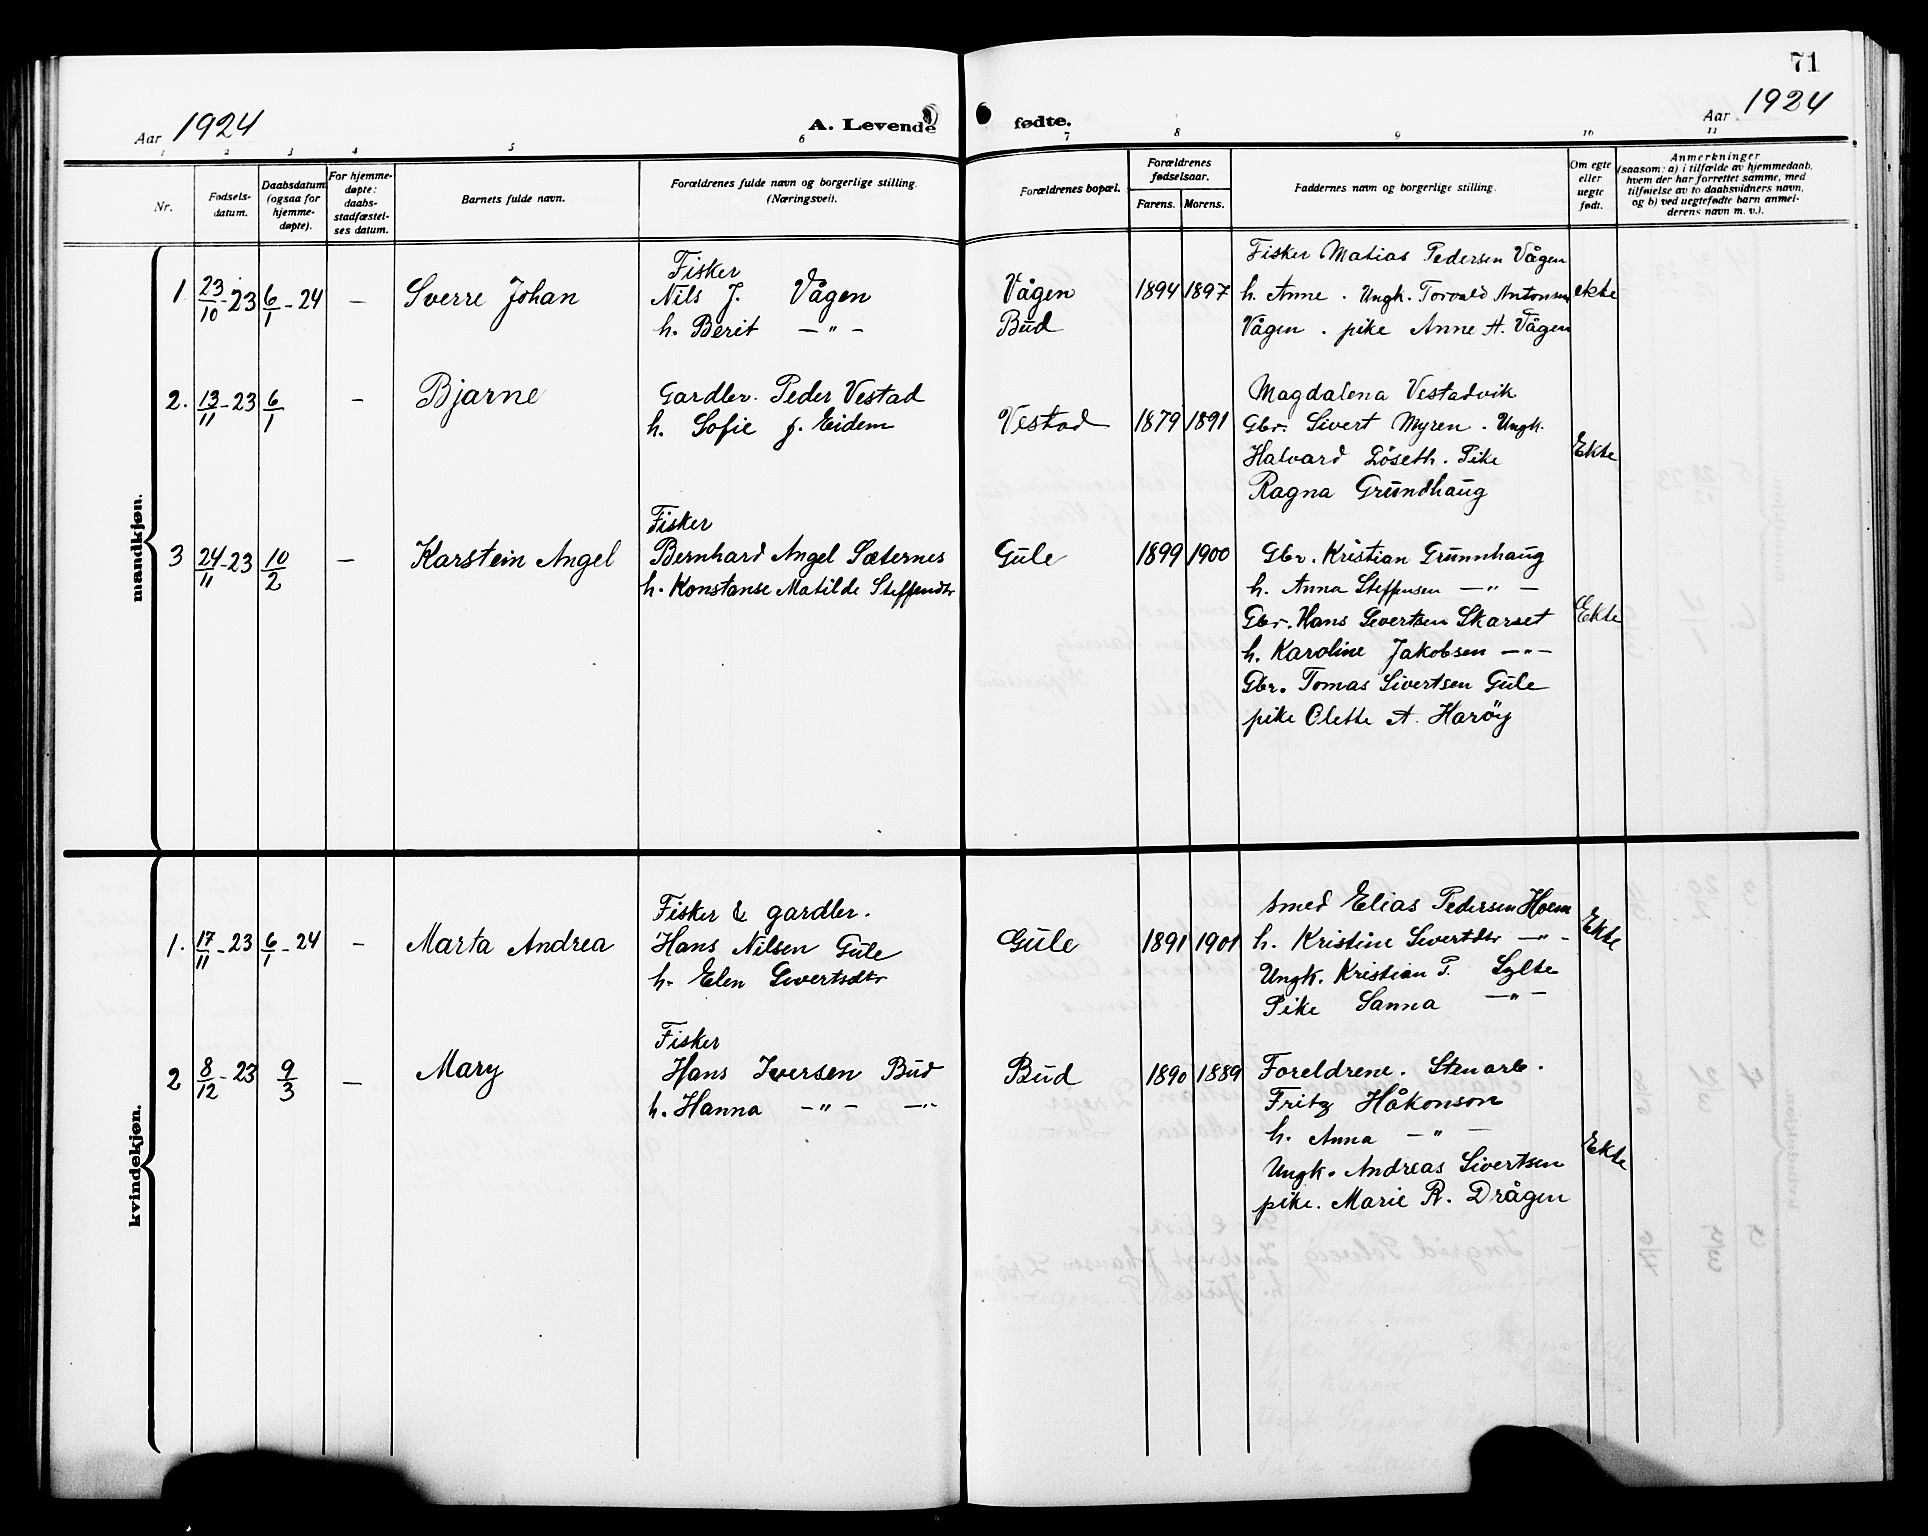 71
Aar 1924
A. Levende fødte.
Aar 1924
1 2 3 4 5 6 7 8 9 10 11
Nr.
Fødsels-
datum.
Daabsdatum
(ogsaa for
hjemme-
døpte).
For hjemme-
døpte:
daabs-
stadfæstel-
ses datum.
Barnets fulde navn.
Forældrenes fulde navn og borgerlige stilling.
(Næringsvei).
Forældrenes bopæl.
Forældrenes
fødselsaar.
Farens. Morens.
Faddernes navn og borgerlige stilling.
Om egte
eller
uegte
født.
Anmerkninger
(saasom: a) i tilfælde av hjemmedaab,
hvem der har forrettet samme, med
tilføielse av to daabsvidners navn,
og b) ved uegtefødte barn anmel-
derens navn m. v.).
mandkjøn.
1 23/10-23 6/1-24 — Sverre Johan
Fisker
Nils J. Vågen
h. Berit —"—
Vågen
Bud
1894 1897
Fisker Matias Pedersen Vågen
h. Anne . Ungk. Torvald Antonsen
Vågen . pike Anne A. Vågen
ekte
2. 13/11-23 6/1 — Bjarne
Gardbr. Peder Vestad
h. Sofie f. Eidem
Vestad
1879 1891
Magdalena Vestadvik
Gbr. Sivert Myren . Ungk.
Halvard Löseth. Pike
Ragna Grundhaug
Ekte
3 24/11-23 10/2 — Karstein Angel
Fisker
Bernhard Angel Sæternes
h. Konstanse Matilde Steffendtr
Gule
1899 1900
Gbr. Kristian Grunnhaug
h. Anna Steffensen —"—
Gbr. Hans Sivertsen Skarset
h. Karoline Jakobsen —"—
Gbr. Tomas Sivertsen Gule
pike Olette A. Haröy
Ekte
kvindekjøn.
1. 17/11-23 6/1-24 — Marta Andrea
Fisker & gardbr.
Hans Nilsen Gule
h. Elen Sivertsdtr
Gule
1891 1901
Smed Elias Pedersen Hoem
h. Kristine Sivertdtr —"—
Ungk. Kristian P. Sylte
Pike Sanna —"—
Ekte
2 8/12-23 9/3 — Mary
Fisker
Hans Iversen Bud
h. Hanna —"— —"—
Bud
1890 1889
Foreldrene. Stenarb.
Fritz Håkonson
h. Anna —"—
Ungk. Andreas Sivertsen
pike. Marie R. Drågen
Ekte